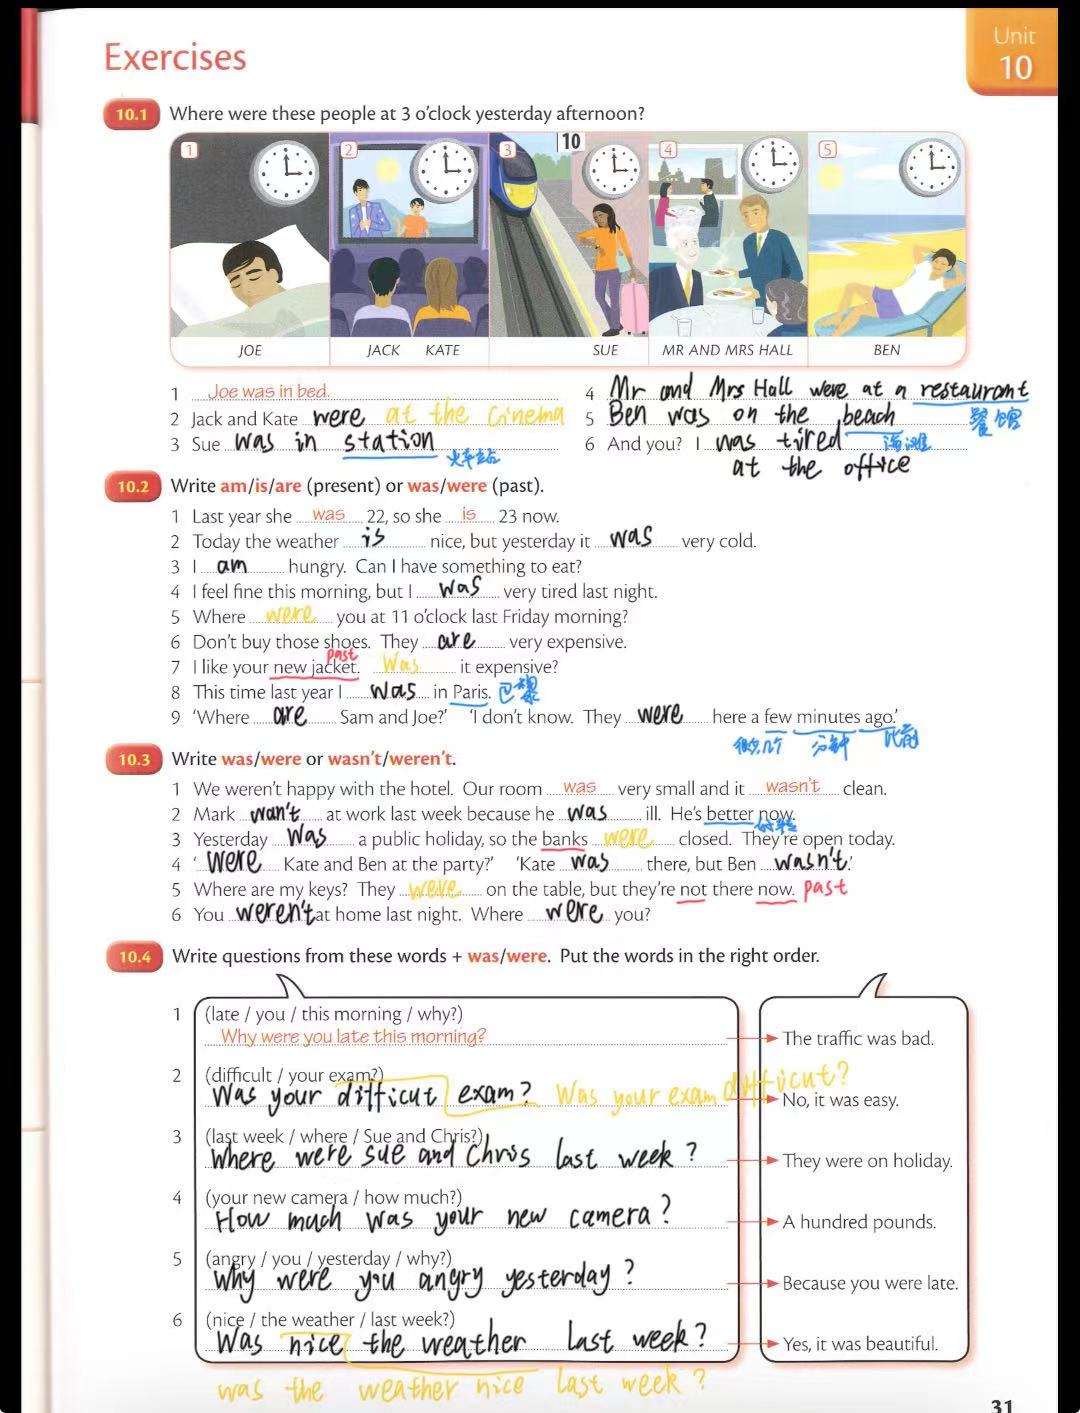 Exercises
Unit
10
10.1 Where were these people at 3 o'clock yesterday afternoon?
1 2 3 10 4 5
JOE JACK KATE SUE MR AND MRS HALL BEN
1 Joe was in bed.
2 Jack and Kate were at the Cinema
3 Sue was in station
火车站
4 Mr and Mrs Hall were at a restauront
餐馆
5 Ben was on the beach
海滩
6 And you? I was tired
at the office
10.2 Write am/is/are (present) or was/were (past).
1 Last year she was 22, so she is 23 now.
2 Today the weather is nice, but yesterday it was very cold.
3 I am hungry. Can I have something to eat?
4 I feel fine this morning, but I was very tired last night.
5 Where were you at 11 o'clock last Friday morning?
6 Don't buy those shoes. They are very expensive.
past
7 I like your new jacket. Was it expensive?
8 This time last year I was in Paris. 巴黎
9 'Where are Sam and Joe?' 'I don't know. They were here a few minutes ago.'
很少几个 分钟 以前
10.3 Write was/were or wasn't/weren't.
1 We weren't happy with the hotel. Our room was very small and it wasn't clean.
2 Mark wan't at work last week because he was ill. He's better now.
3 Yesterday Was a public holiday, so the banks were closed. They're open today.
4 'Were Kate and Ben at the party?' 'Kate was there, but Ben wasn't.'
5 Where are my keys? They were on the table, but they're not there now. past
6 You weren't at home last night. Where were you?
10.4 Write questions from these words + was/were. Put the words in the right order.
1 (late / you / this morning / why?)
Why were you late this morning? The traffic was bad.
2 (difficult / your exam?)
Was your difficut exam? Was your exam difficut? No, it was easy.
3 (last week / where / Sue and Chris?)
Where were sue and Chris last week? They were on holiday.
4 (your new camera / how much?)
How much was your new camera? A hundred pounds.
5 (angry / you / yesterday / why?)
Why were you angry yesterday? Because you were late.
6 (nice / the weather / last week?)
Was nice the weather last week? Yes, it was beautiful.
was the weather nice last week?
31